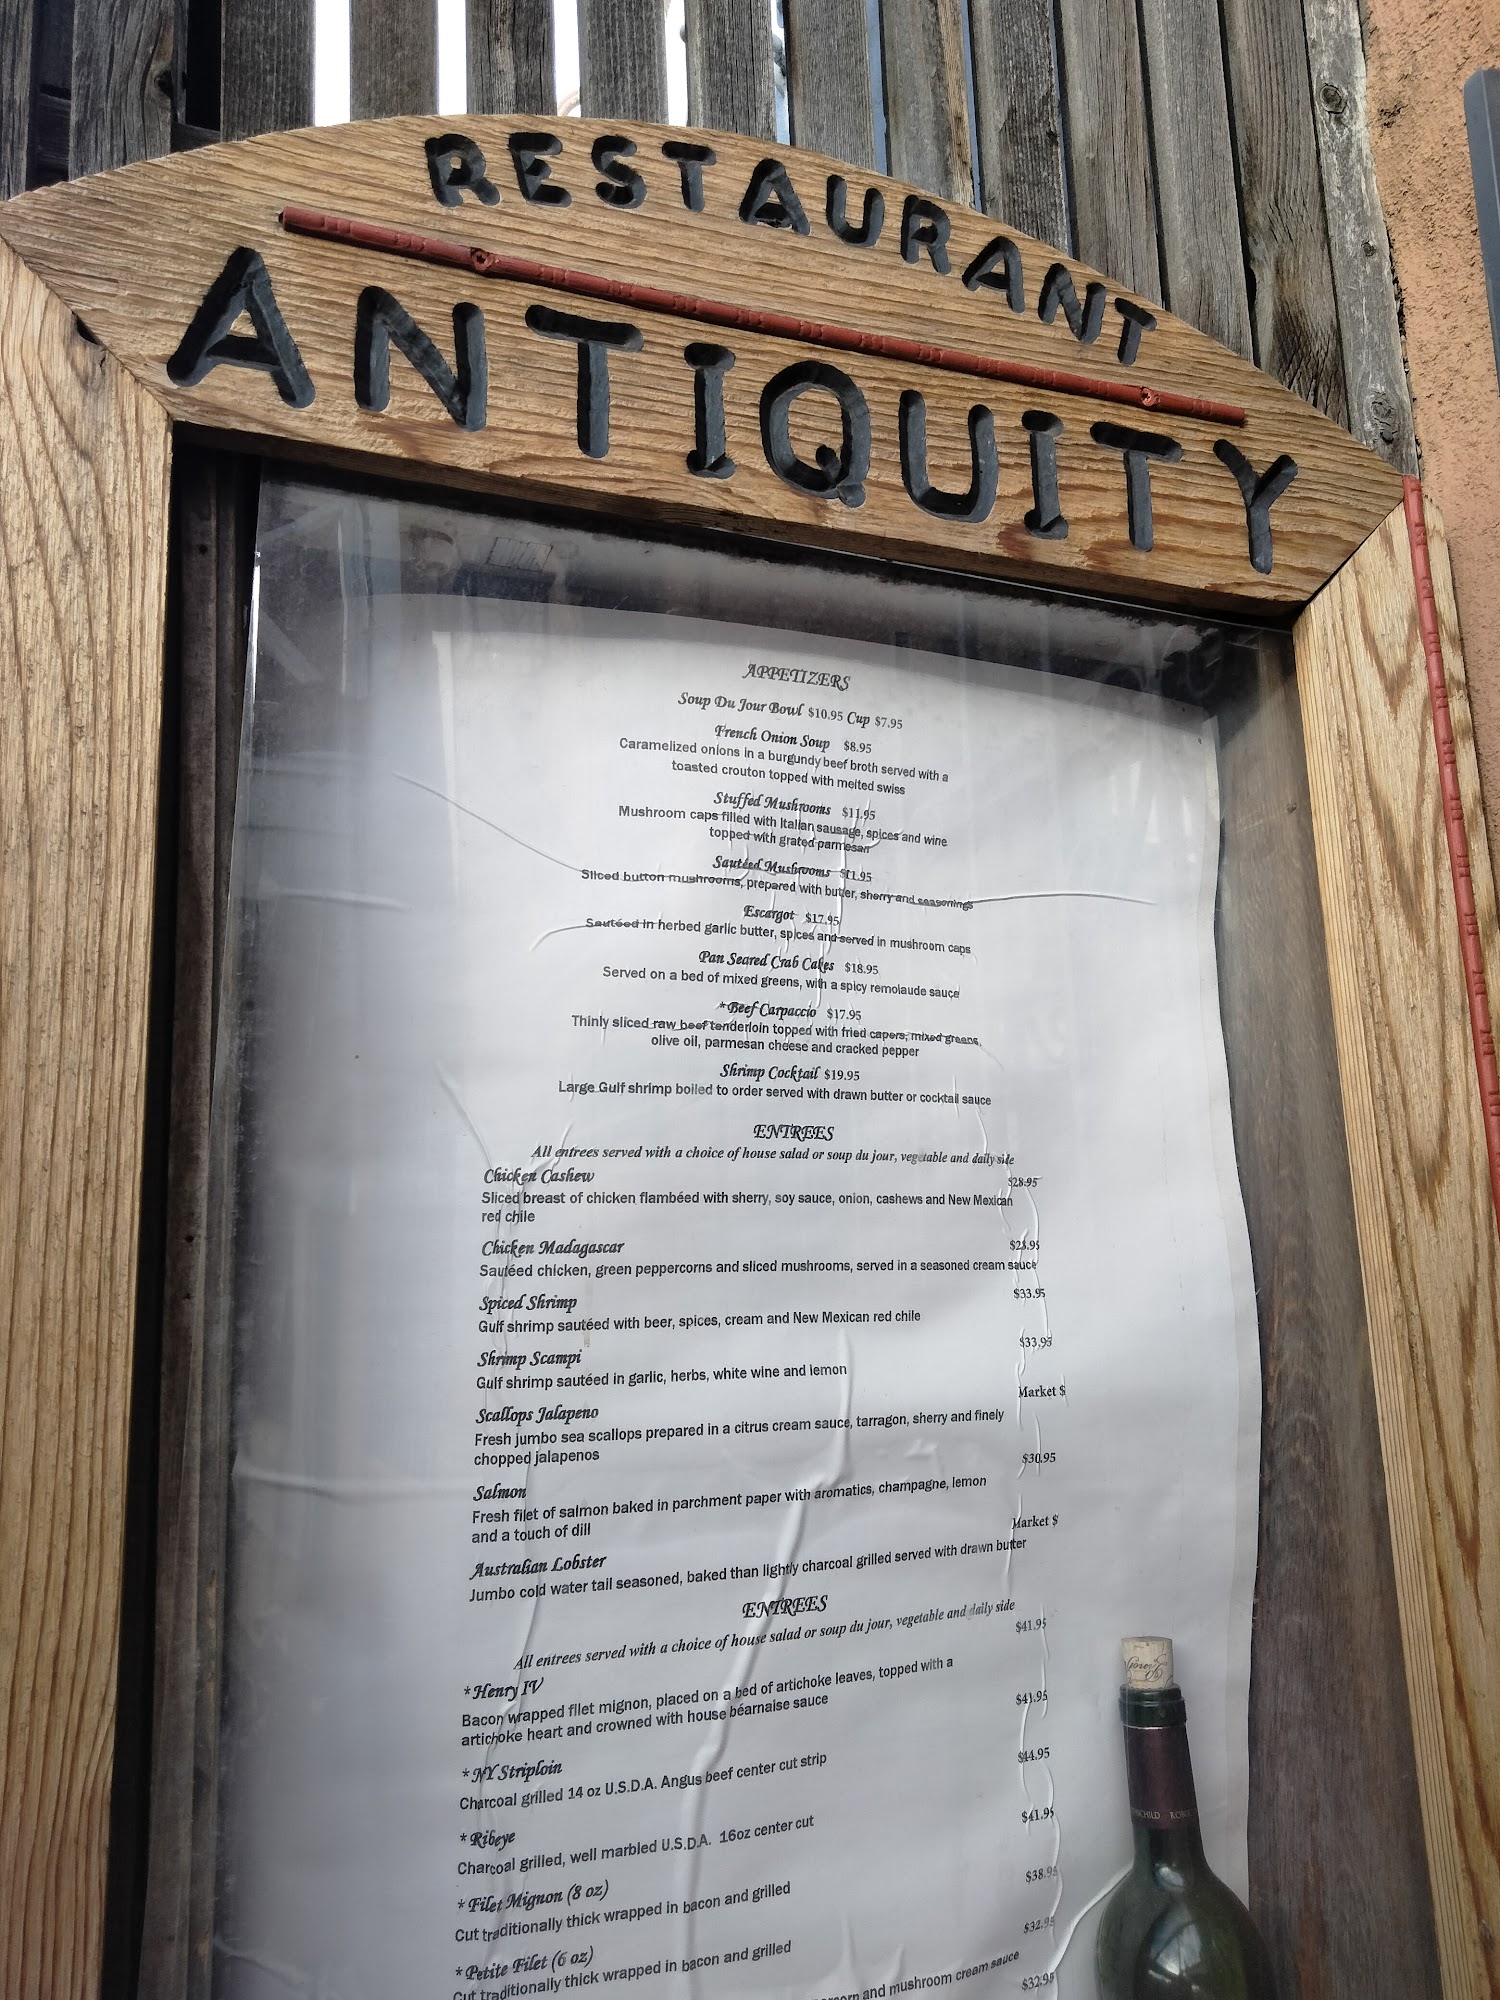 RESTAURANT
ANTIQUITY
APPETIZERS
Soup Du Jour Bowl $10.95 Cup $7.95
French Onion Soup $8.95
Caramelized onions in a burgundy beef broth served with a
toasted crouton topped with melted swiss
Stuffed Mushrooms $11.95
Mushroom caps filled with Italian sausage, spices and wine
topped with grated parmesan
Sautéed Mushrooms $11.95
Sliced button mushrooms, prepared with butter, sherry and seasonings
Escargot $17.95
Sautéed in herbed garlic butter, spices and served in mushroom caps
Pan Seared Crab Cakes $18.95
Served on a bed of mixed greens, with a spicy remolaude sauce
*Beef Carpaccio $17.95
Thinly sliced raw beef tenderloin topped with fried capers, mixed greens,
olive oil, parmesan cheese and cracked pepper
Shrimp Cocktail $19.95
Large Gulf shrimp boiled to order served with drawn butter or cocktail sauce
ENTREES
All entrees served with a choice of house salad or soup du jour, vegetable and daily side
Chicken Cashew $28.95
Sliced breast of chicken flambéed with sherry, soy sauce, onion, cashews and New Mexican
red chile
Chicken Madagascar $28.95
Sautéed chicken, green peppercorns and sliced mushrooms, served in a seasoned cream sauce
Spiced Shrimp $33.95
Gulf shrimp sautéed with beer, spices, cream and New Mexican red chile
Shrimp Scampi $33.95
Gulf shrimp sautéed in garlic, herbs, white wine and lemon
Scallops Jalapeno Market $
Fresh jumbo sea scallops prepared in a citrus cream sauce, tarragon, sherry and finely
chopped jalapenos
Salmon $30.95
Fresh filet of salmon baked in parchment paper with aromatics, champagne, lemon
and a touch of dill
Australian Lobster Market $
Jumbo cold water tail seasoned, baked than lightly charcoal grilled served with drawn butter
ENTREES
All entrees served with a choice of house salad or soup du jour, vegetable and daily side
*Henry IV $41.95
Bacon wrapped filet mignon, placed on a bed of artichoke leaves, topped with a
artichoke heart and crowned with house béarnaise sauce
*NY Striploin $41.95
Charcoal grilled 14 oz U.S.D.A. Angus beef center cut strip
*Ribeye $44.95
Charcoal grilled, well marbled U.S.D.A. 16oz center cut
*Filet Mignon (8 oz) $41.95
Cut traditionally thick wrapped in bacon and grilled
*Petite Filet (6 oz) $38.95
Cut traditionally thick wrapped in bacon and grilled
$32.95
and mushroom cream sauce
$32.95